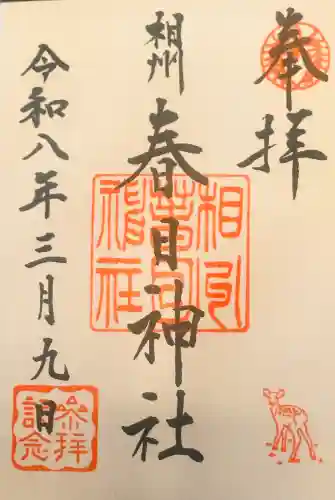 奉拝
相州
春日神社
令和八年三月九日
相州春日神社
参拝記念